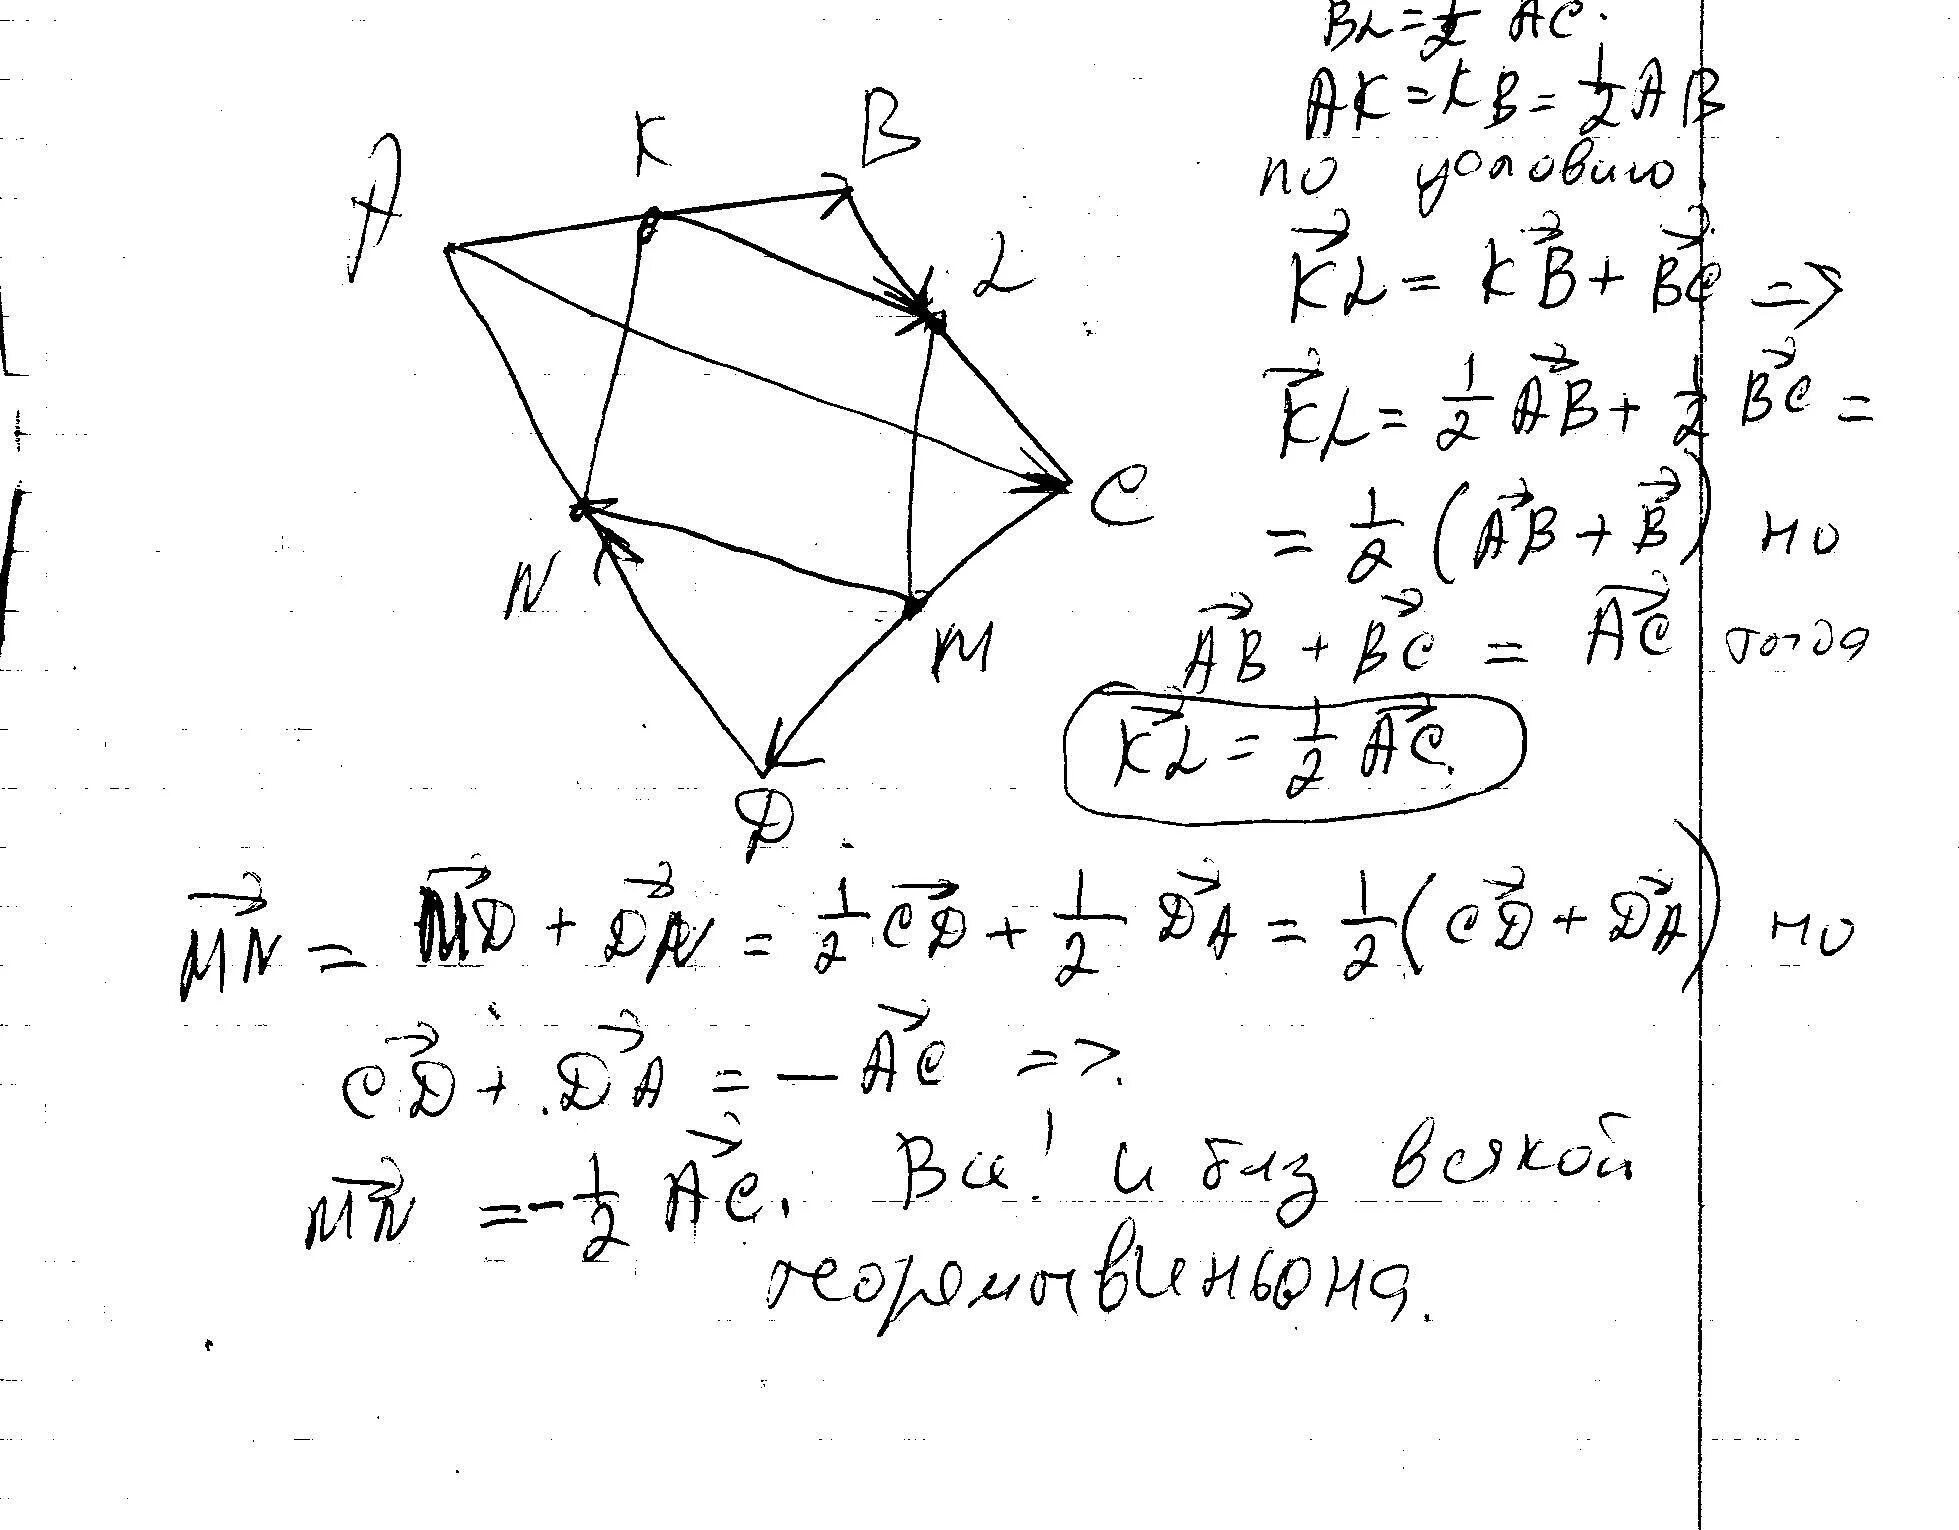 BL = 1/2 AC.
AK = KB = 1/2 AB
по условию.
K
B
A
L
C
N
M
D
K⃗L = KB⃗ + BC⃗ =>
K⃗L = 1/2 AB⃗ + 1/2 BC⃗ =
= 1/2 (AB⃗ + B⃗) но
AB⃗ + BC⃗ = AC⃗ тогда
KL⃗ = 1/2 AC⃗.
MN⃗ = MD⃗ + DN⃗ = 1/2 CD⃗ + 1/2 DA⃗ = 1/2 (CD⃗ + DA⃗) но
CD⃗ + DA⃗ = – AC⃗ =>.
MN⃗ = - 1/2 AC⃗. Все! и без всякой